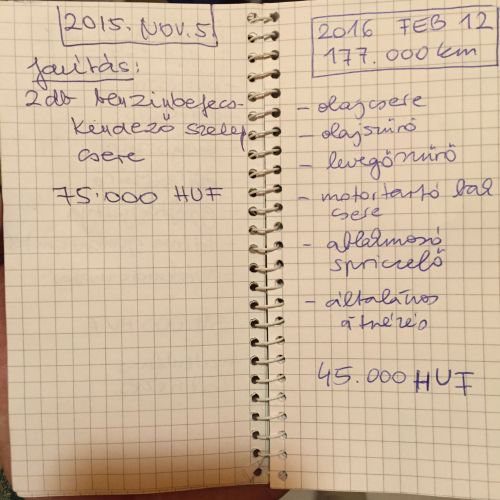 2015. NOV. 5.
Javítás:
2 db benzinbefecs-
kendező szelep
csere
75.000 HUF
2016 FEB 12
177.000 km
- olajcsere
- olajszűrő
- levegőszűrő
- motortartó bak
csere
- ablakmosó
spriccelő
- általános
átnézés
45.000 HUF